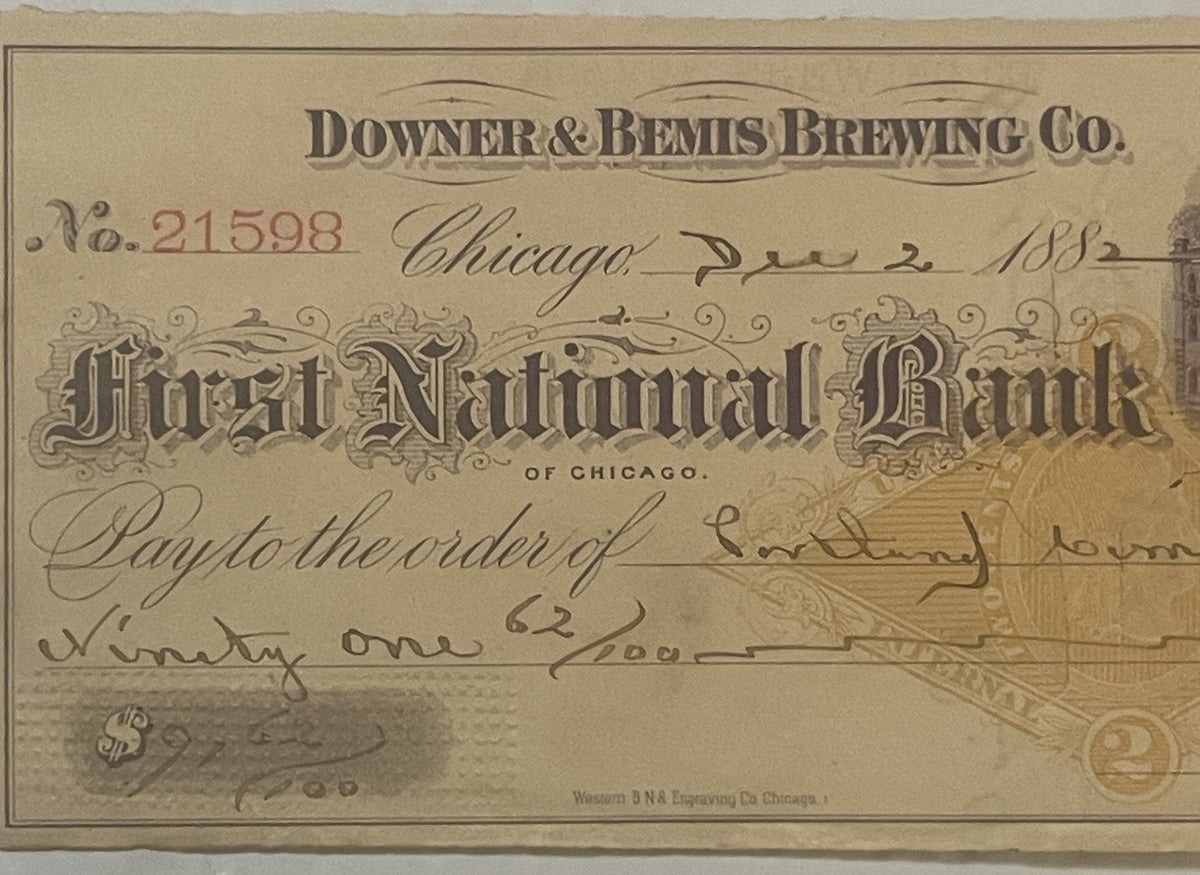 DOWNER & BEMIS BREWING CO.
No. 21598 Chicago, Dec 2 1882
First National Bank
OF CHICAGO.
Pay to the order of Cortland
Ninety one 62/100
$ 91 62/100
Western B N & Engraving Co. Chicago.
INTERNAL
2